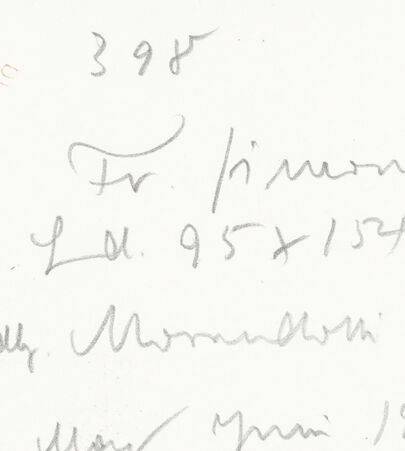 398
Fr. Simon
Ld. 95 x 154
Morandotti
Juni 19